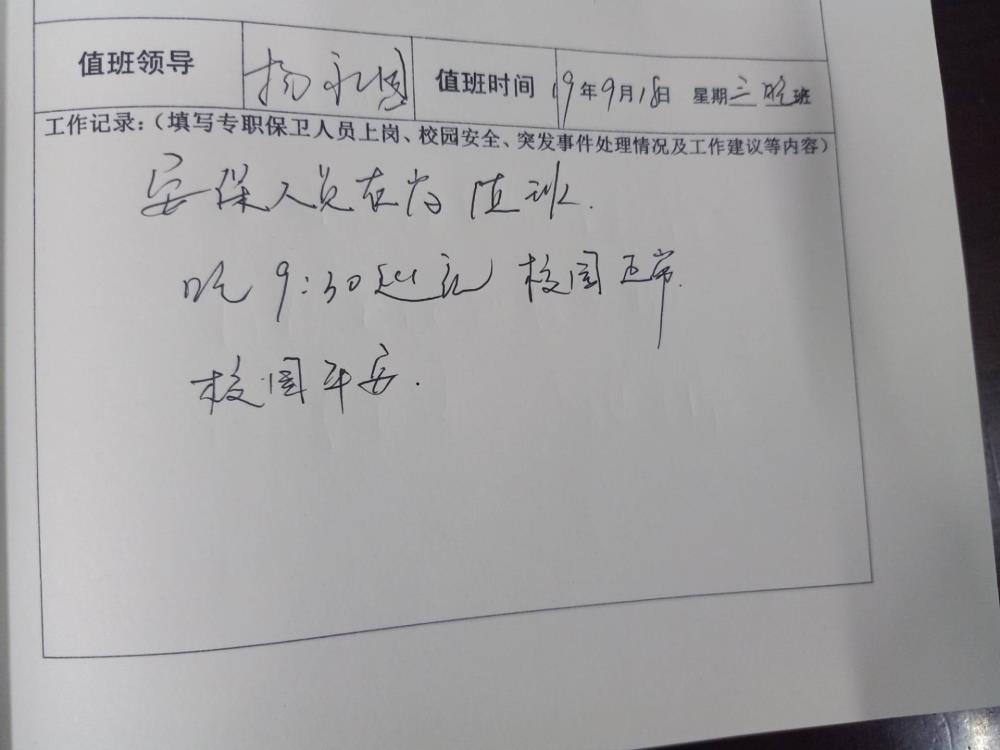 值班领导 杨永国 值班时间 19年9月18日 星期三晚班
工作记录：（填写专职保卫人员上岗、校园安全、突发事件处理情况及工作建议等内容）
安保人员在岗值班.
晚9:30巡视 校园正常.
校园平安.